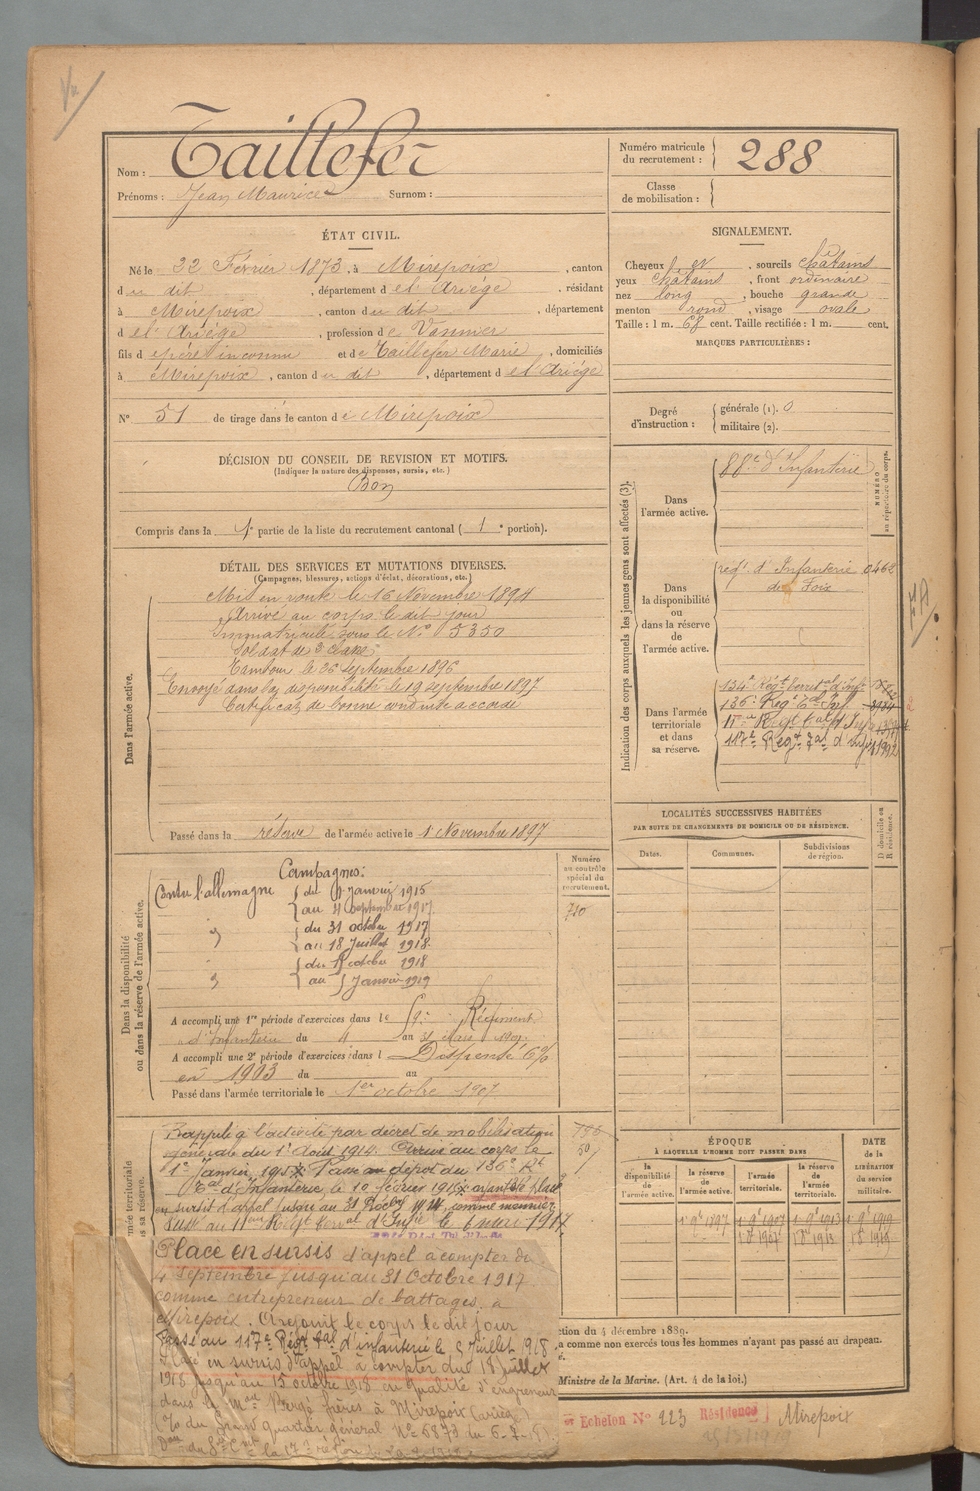 Nom : Taillefer
Prénoms : Jean Maurice Surnom :
Numéro matricule
du recrutement : 288
Classe
de mobilisation :
ÉTAT CIVIL.
Né le 22 Février 1873, à Mirepoix, canton
du dit, département de l'Ariège, résidant
à Mirepoix, canton du dit, département
de l'Ariège, profession de Vannier
fils de père inconnu et de Taillefer Marie, domiciliés
à Mirepoix, canton du dit, département de l'Ariège
N° 51 de tirage dans le canton de Mirepoix
SIGNALEMENT.
Cheveux et, sourcils châtains
yeux châtains, front ordinaire
nez long, bouche grande
menton rond, visage ovale
Taille : 1 m. 68 cent. Taille rectifiée : 1 m. cent.
MARQUES PARTICULIÈRES :
Degré
d'instruction :
générale (1). 0
militaire (2).
DÉCISION DU CONSEIL DE REVISION ET MOTIFS.
(Indiquer la nature des dispenses, sursis, etc.)
Bon
Compris dans la 1e partie de la liste du recrutement cantonal ( 1 e portion).
DÉTAIL DES SERVICES ET MUTATIONS DIVERSES.
(Campagnes, blessures, actions d'éclat, décorations, etc.)
Dans l'armée active.
Mis en route le 16 Novembre 1894
Arrivé au corps le dit jour
Immatriculé sous le N° 5350
Soldat de 2e classe
Tambour le 26 septembre 1896
Envoyé dans la disponibilité le 19 septembre 1897
Certificat de bonne conduite accordé
Passé dans la réserve de l'armée active le 1 Novembre 1897
Indication des corps auxquels les jeunes gens sont affectés (3).
NUMÉRO
au répertoire du corps.
Dans
l'armée active.
88e d'Infanterie
Dans
la disponibilité
ou
dans la réserve
de
l'armée active.
regt. d'Infanterie 0462
de Foix
Dans l'armée
territoriale
et dans
sa réserve.
134e Régt territal d'Inf.
136e Regt Tal Inf.
11e Régt Tal d'Inf
117e Regt Tal d'Inf
LOCALITÉS SUCCESSIVES HABITÉES
PAR SUITE DE CHANGEMENTS DE DOMICILE OU DE RÉSIDENCE.
Dates.
Communes.
Subdivisions
de région.
D domicile ou
R résidence.
Dans la disponibilité
ou dans la réserve de l'armée active.
Numéro
au contrôle
spécial du
recrutement.
Campagnes :
Contre l'allemagne du 1 janvier 1915
au 4 septembre 1917
" du 31 octobre 1917
au 18 Juillet 1918
" du 15 octobre 1918
au 5 Janvier 1919
A accompli une 1re période d'exercices dans le 59e Régiment
d'Infanterie du 4 au 31 mars 1901
A accompli une 2e période d'exercices dans l Dispensé 6%
en 1903 du au
Passé dans l'armée territoriale le 1er octobre 1907
Rappelé à l'activité par décret de mobilisation
générale du 1er Août 1914. Arrivé au corps le
1er Janvier 1915. Passé au dépôt du 136e Rt
Tal d'Infanterie, le 10 février 1916 ayant été placé
en sursis d'appel jusqu'au 31 comme meunier
Passé au 11eme Régt terral d'Infie le 6 mars 1917
Placé en sursis d'appel à compter du
4 septembre jusqu'au 31 Octobre 1917
comme entrepreneur de battages à
Mirepoix. A rejoint le corps le dit jour
Passé au 117e Régt Tal d'infanterie le 5 Juillet 1918
Placé en sursis d'appel à compter du 18 Juillet
1918 jusqu'au 15 octobre 1918 en qualité d'engreneur
dans la Mon Bergé frères à Mirepoix (Ariège)
du Grand quartier général N° 5873 du 6-7-
ÉPOQUE
À LAQUELLE L'HOMME DOIT PASSER DANS
la
disponibilité
de
l'armée active.
la réserve
de
l'armée active.
l'armée
territoriale.
la réserve
de
l'armée
territoriale.
DATE
de la
LIBÉRATION
du service
militaire.
ction du 4 décembre 1889.
a comme non exercés tous les hommes n'ayant pas passé au drapeau.
Ministre de la Marine. (Art. 4 de la loi.)
er Echelon N° 223 Résidence Mirepoix